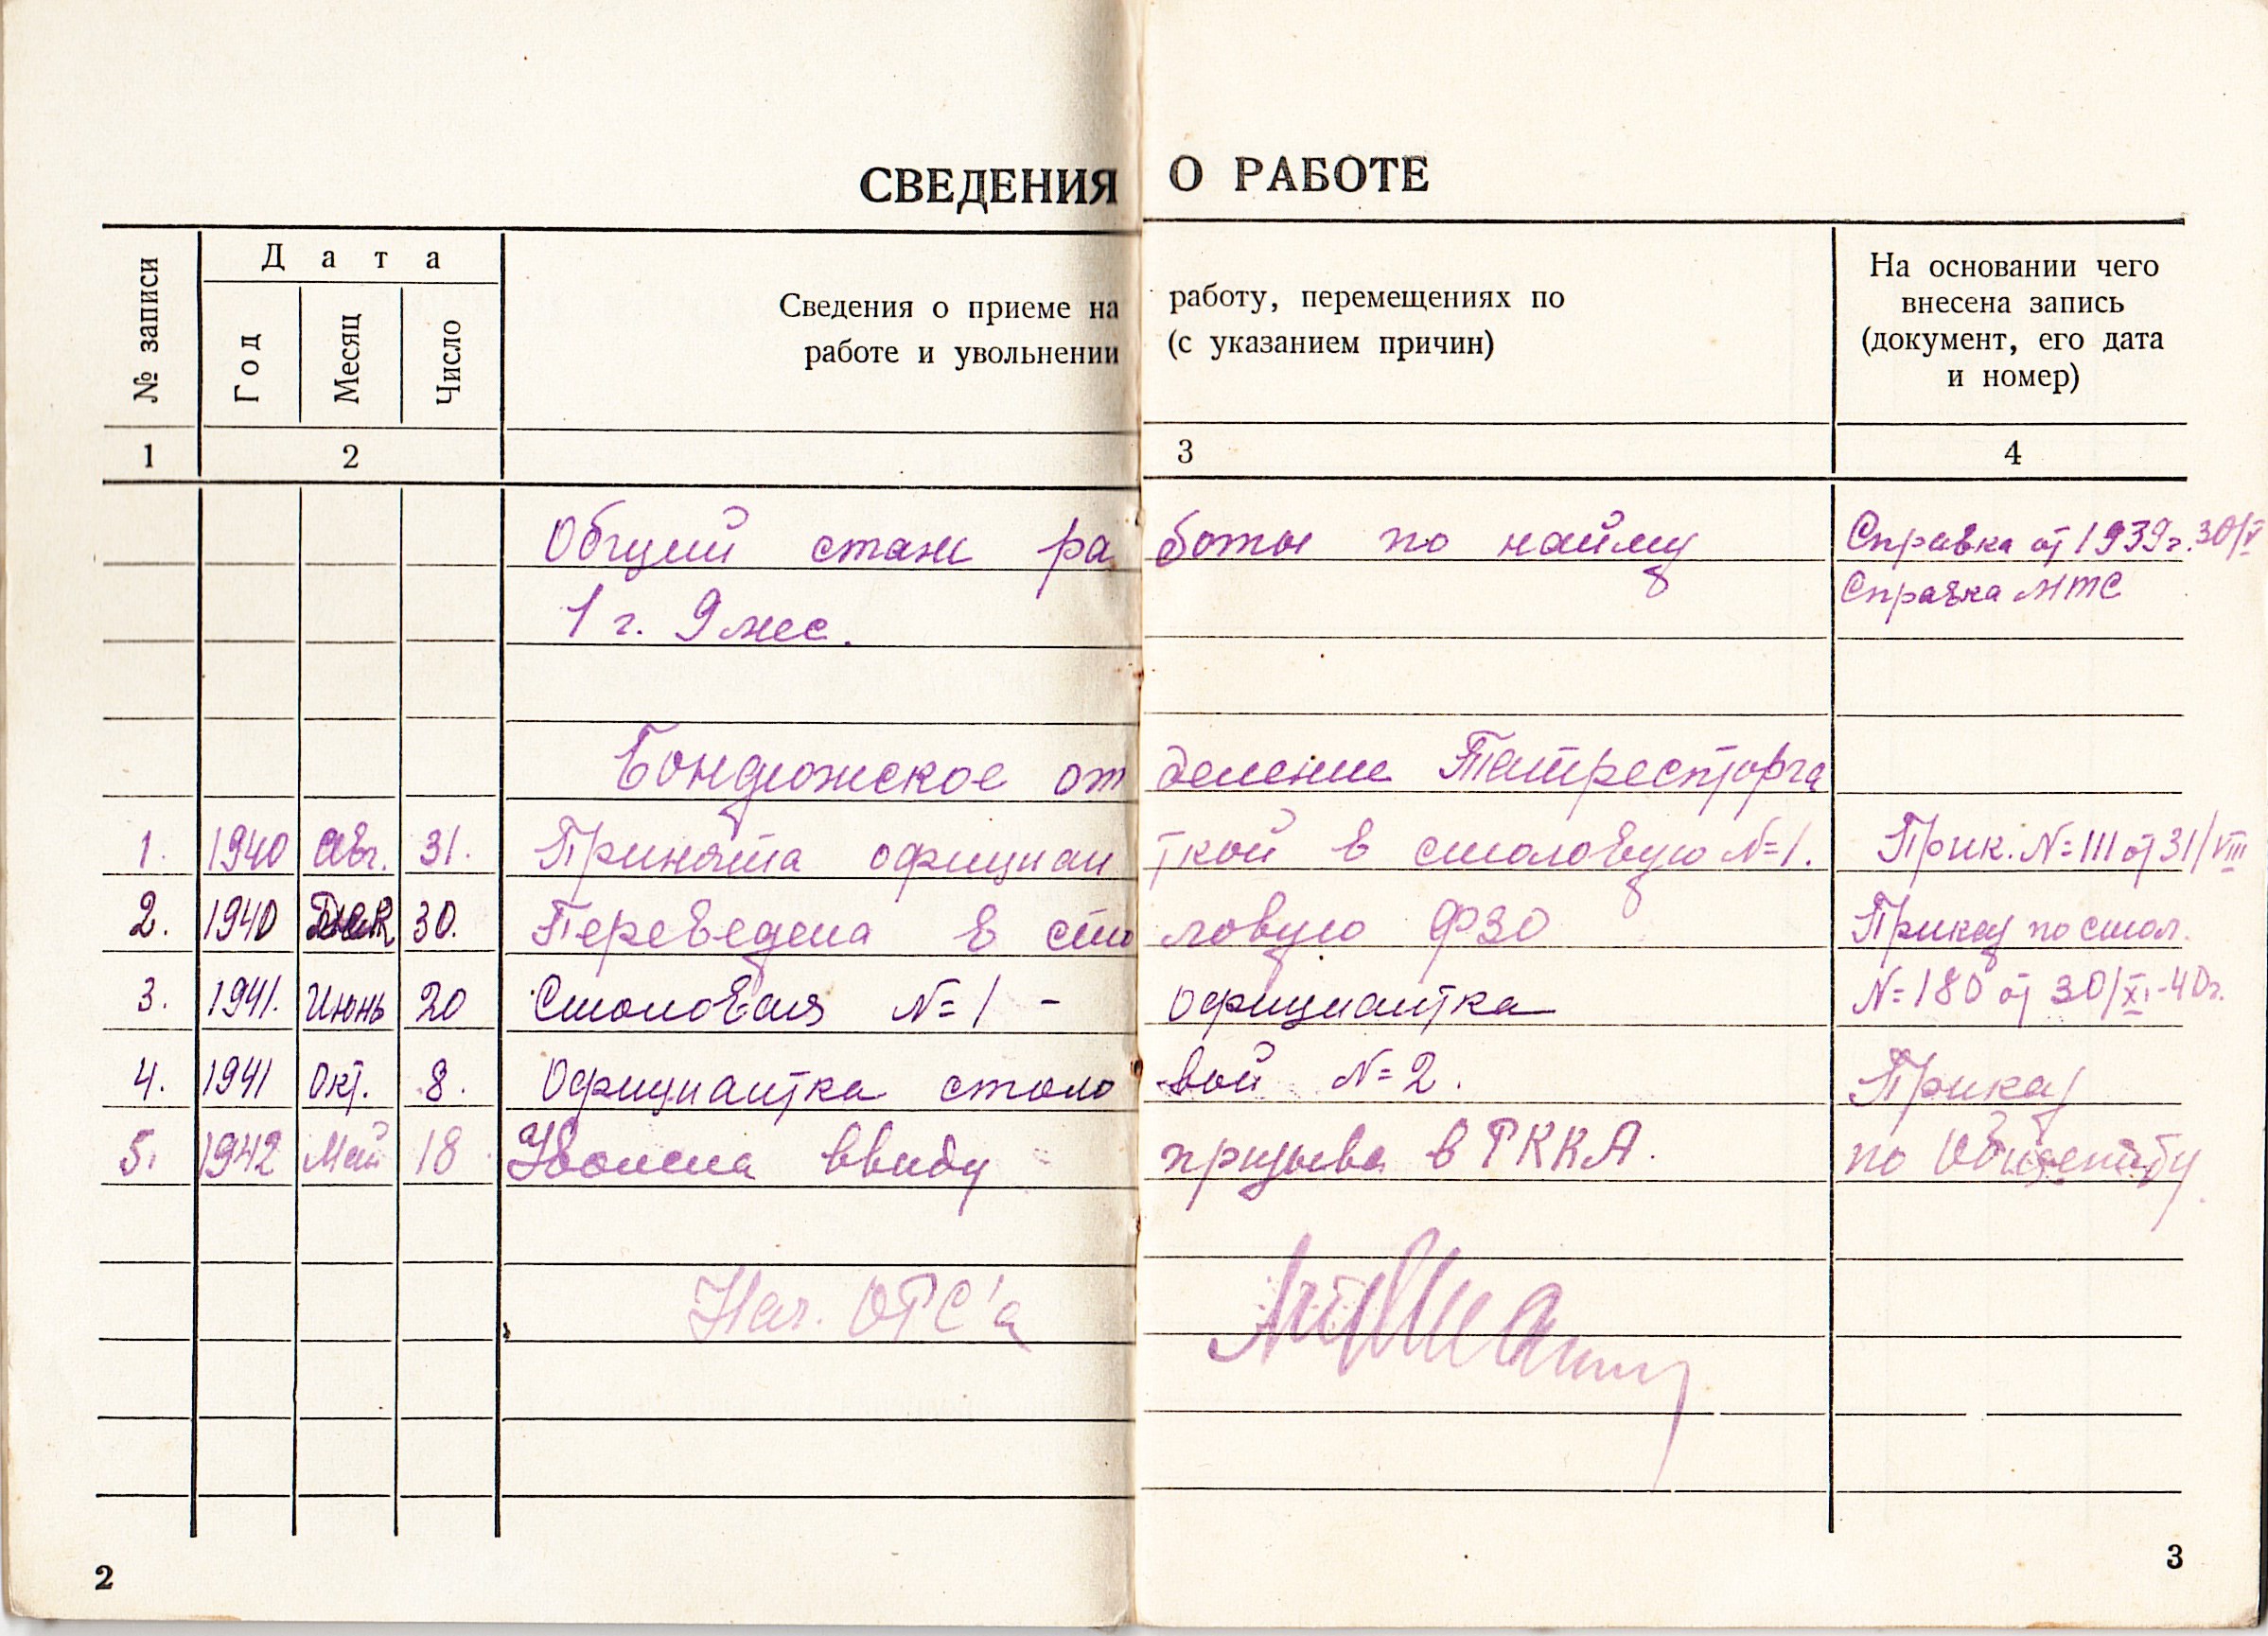 СВЕДЕНИЯ О РАБОТЕ
№ записи
Дата
Год
Месяц
Число
Сведения о приеме на работу, перемещениях по
работе и увольнении (с указанием причин)
На основании чего
внесена запись
(документ, его дата
и номер)
1 2 3 4
Общий стаж работы по найму Справка от 1939г. 30/V
1 г. 9 мес. Справка МТС
Бондюжское отделение Татресторга
1. 1940 Авг. 31. Принята официанткой в столовую №1. Прик. №111 от 31/VIII
2. 1940 30. Переведена в столовую ФЗО Приказ по стол.
3. 1941. Июнь 20 Столовая №1 - официантка №180 от 30/XI-40г.
4. 1941 Окт. 8. Официантка столовой №2. Приказ
5. 1942 Май 18 Уволена ввиду призыва в РККА. по
Нач. ОРС'а
2 3